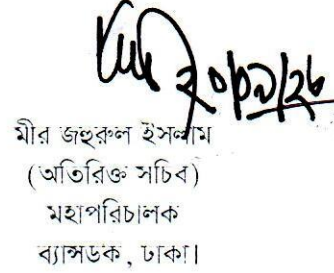 ২০/০৯/২৮
মীর জহুরুল ইসলাম
(অতিরিক্ত সচিব)
মহাপরিচালক
ব্যান্সডক, ঢাকা।